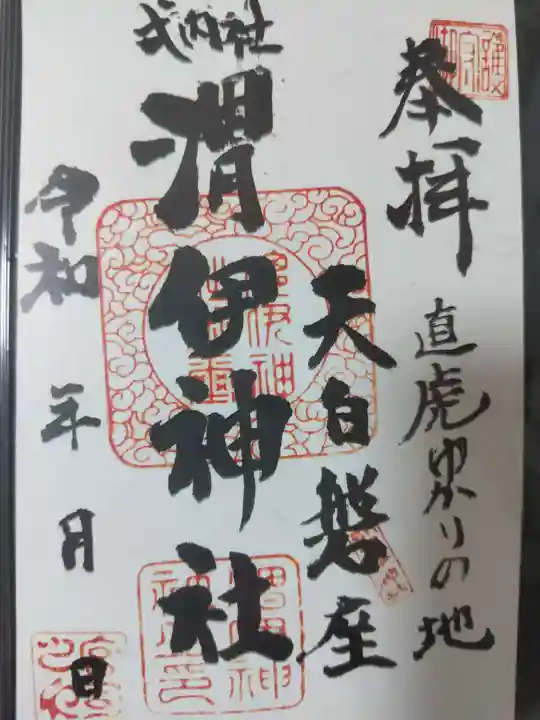 奉拝
直虎ゆかりの地
天白磐座
式内社
渭伊神社
令和 年 月 日